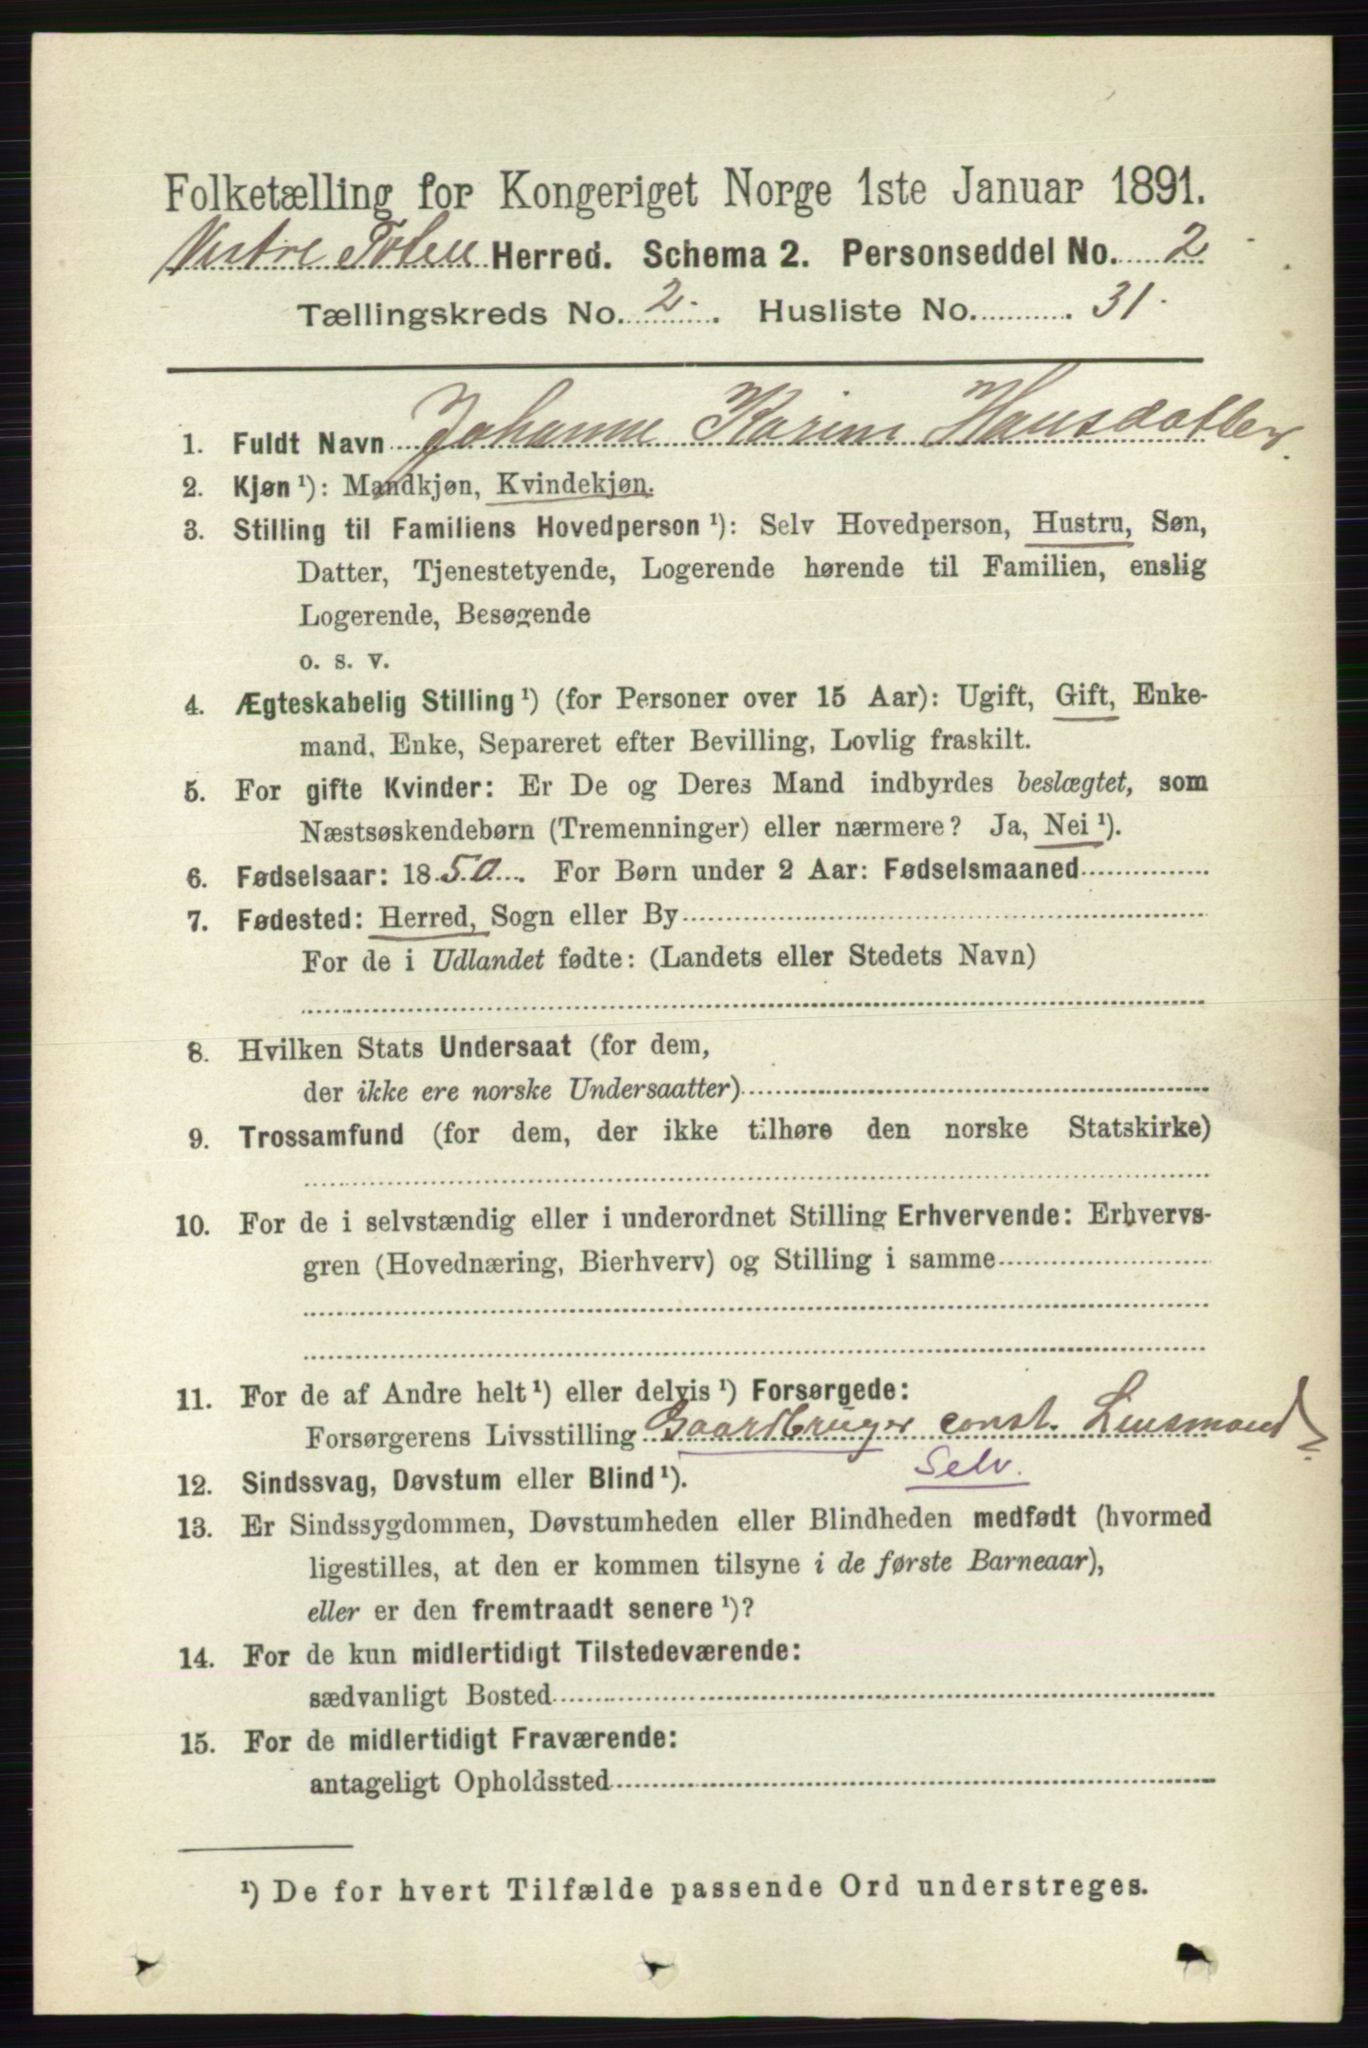 Folketælling for Kongeriget Norge 1ste Januar 1891.
Vestre Toten Herred. Schema 2. Personseddel No. 2
Tællingskreds No. 2. Husliste No. 31.
1. Fuldt Navn Johanne Karine Hansdatter.
2. Kjøn ¹): Mandkjøn, Kvindekjøn.
3. Stilling til Familiens Hovedperson ¹): Selv Hovedperson, Hustru, Søn,
Datter, Tjenestetyende, Logerende hørende til Familien, enslig
Logerende, Besøgende
o. s. v.
4. Ægteskabelig Stilling ¹) (for Personer over 15 Aar): Ugift, Gift, Enke-
mand, Enke, Separeret efter Bevilling, Lovlig fraskilt.
5. For gifte Kvinder: Er De og Deres Mand indbyrdes beslægtet, som
Næstsøskendebørn (Tremenninger) eller nærmere? Ja, Nei ¹).
6. Fødselsaar: 1850. For Børn under 2 Aar: Fødselsmaaned
7. Fødested: Herred, Sogn eller By
For de i Udlandet fødte: (Landets eller Stedets Navn)
8. Hvilken Stats Undersaat (for dem,
der ikke ere norske Undersaatter)
9. Trossamfund (for dem, der ikke tilhøre den norske Statskirke)
10. For de i selvstændig eller i underordnet Stilling Erhvervende: Erhvervs-
gren (Hovednæring, Bierhverv) og Stilling i samme
11. For de af Andre helt ¹) eller delvis ¹) Forsørgede:
Forsørgerens Livsstilling Gaardbruger const. Lensmand
Selv.
12. Sindssvag, Døvstum eller Blind ¹).
13. Er Sindssygdommen, Døvstumheden eller Blindheden medfødt (hvormed
ligestilles, at den er kommen tilsyne i de første Barneaar),
eller er den fremtraadt senere ¹)?
14. For de kun midlertidigt Tilstedeværende:
sædvanligt Bosted
15. For de midlertidigt Fraværende:
antageligt Opholdssted
¹) De for hvert Tilfælde passende Ord understreges.